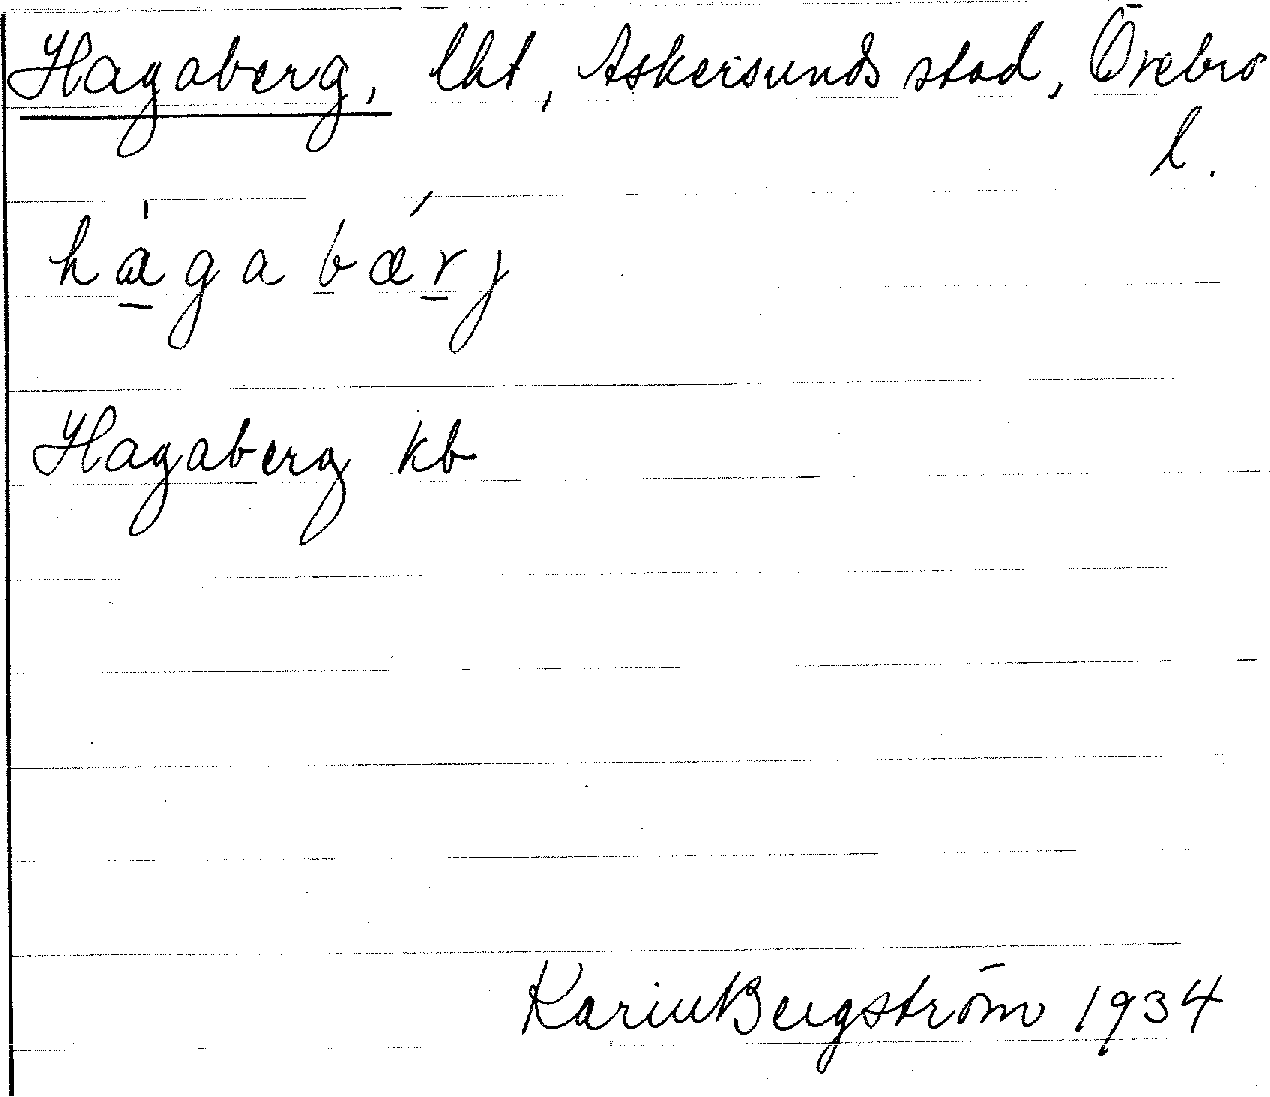 Hagaberg, lht, Askersunds stad, Örebro
l.
hágabǽrj
Hagaberg kb
Karin Bergström 1934